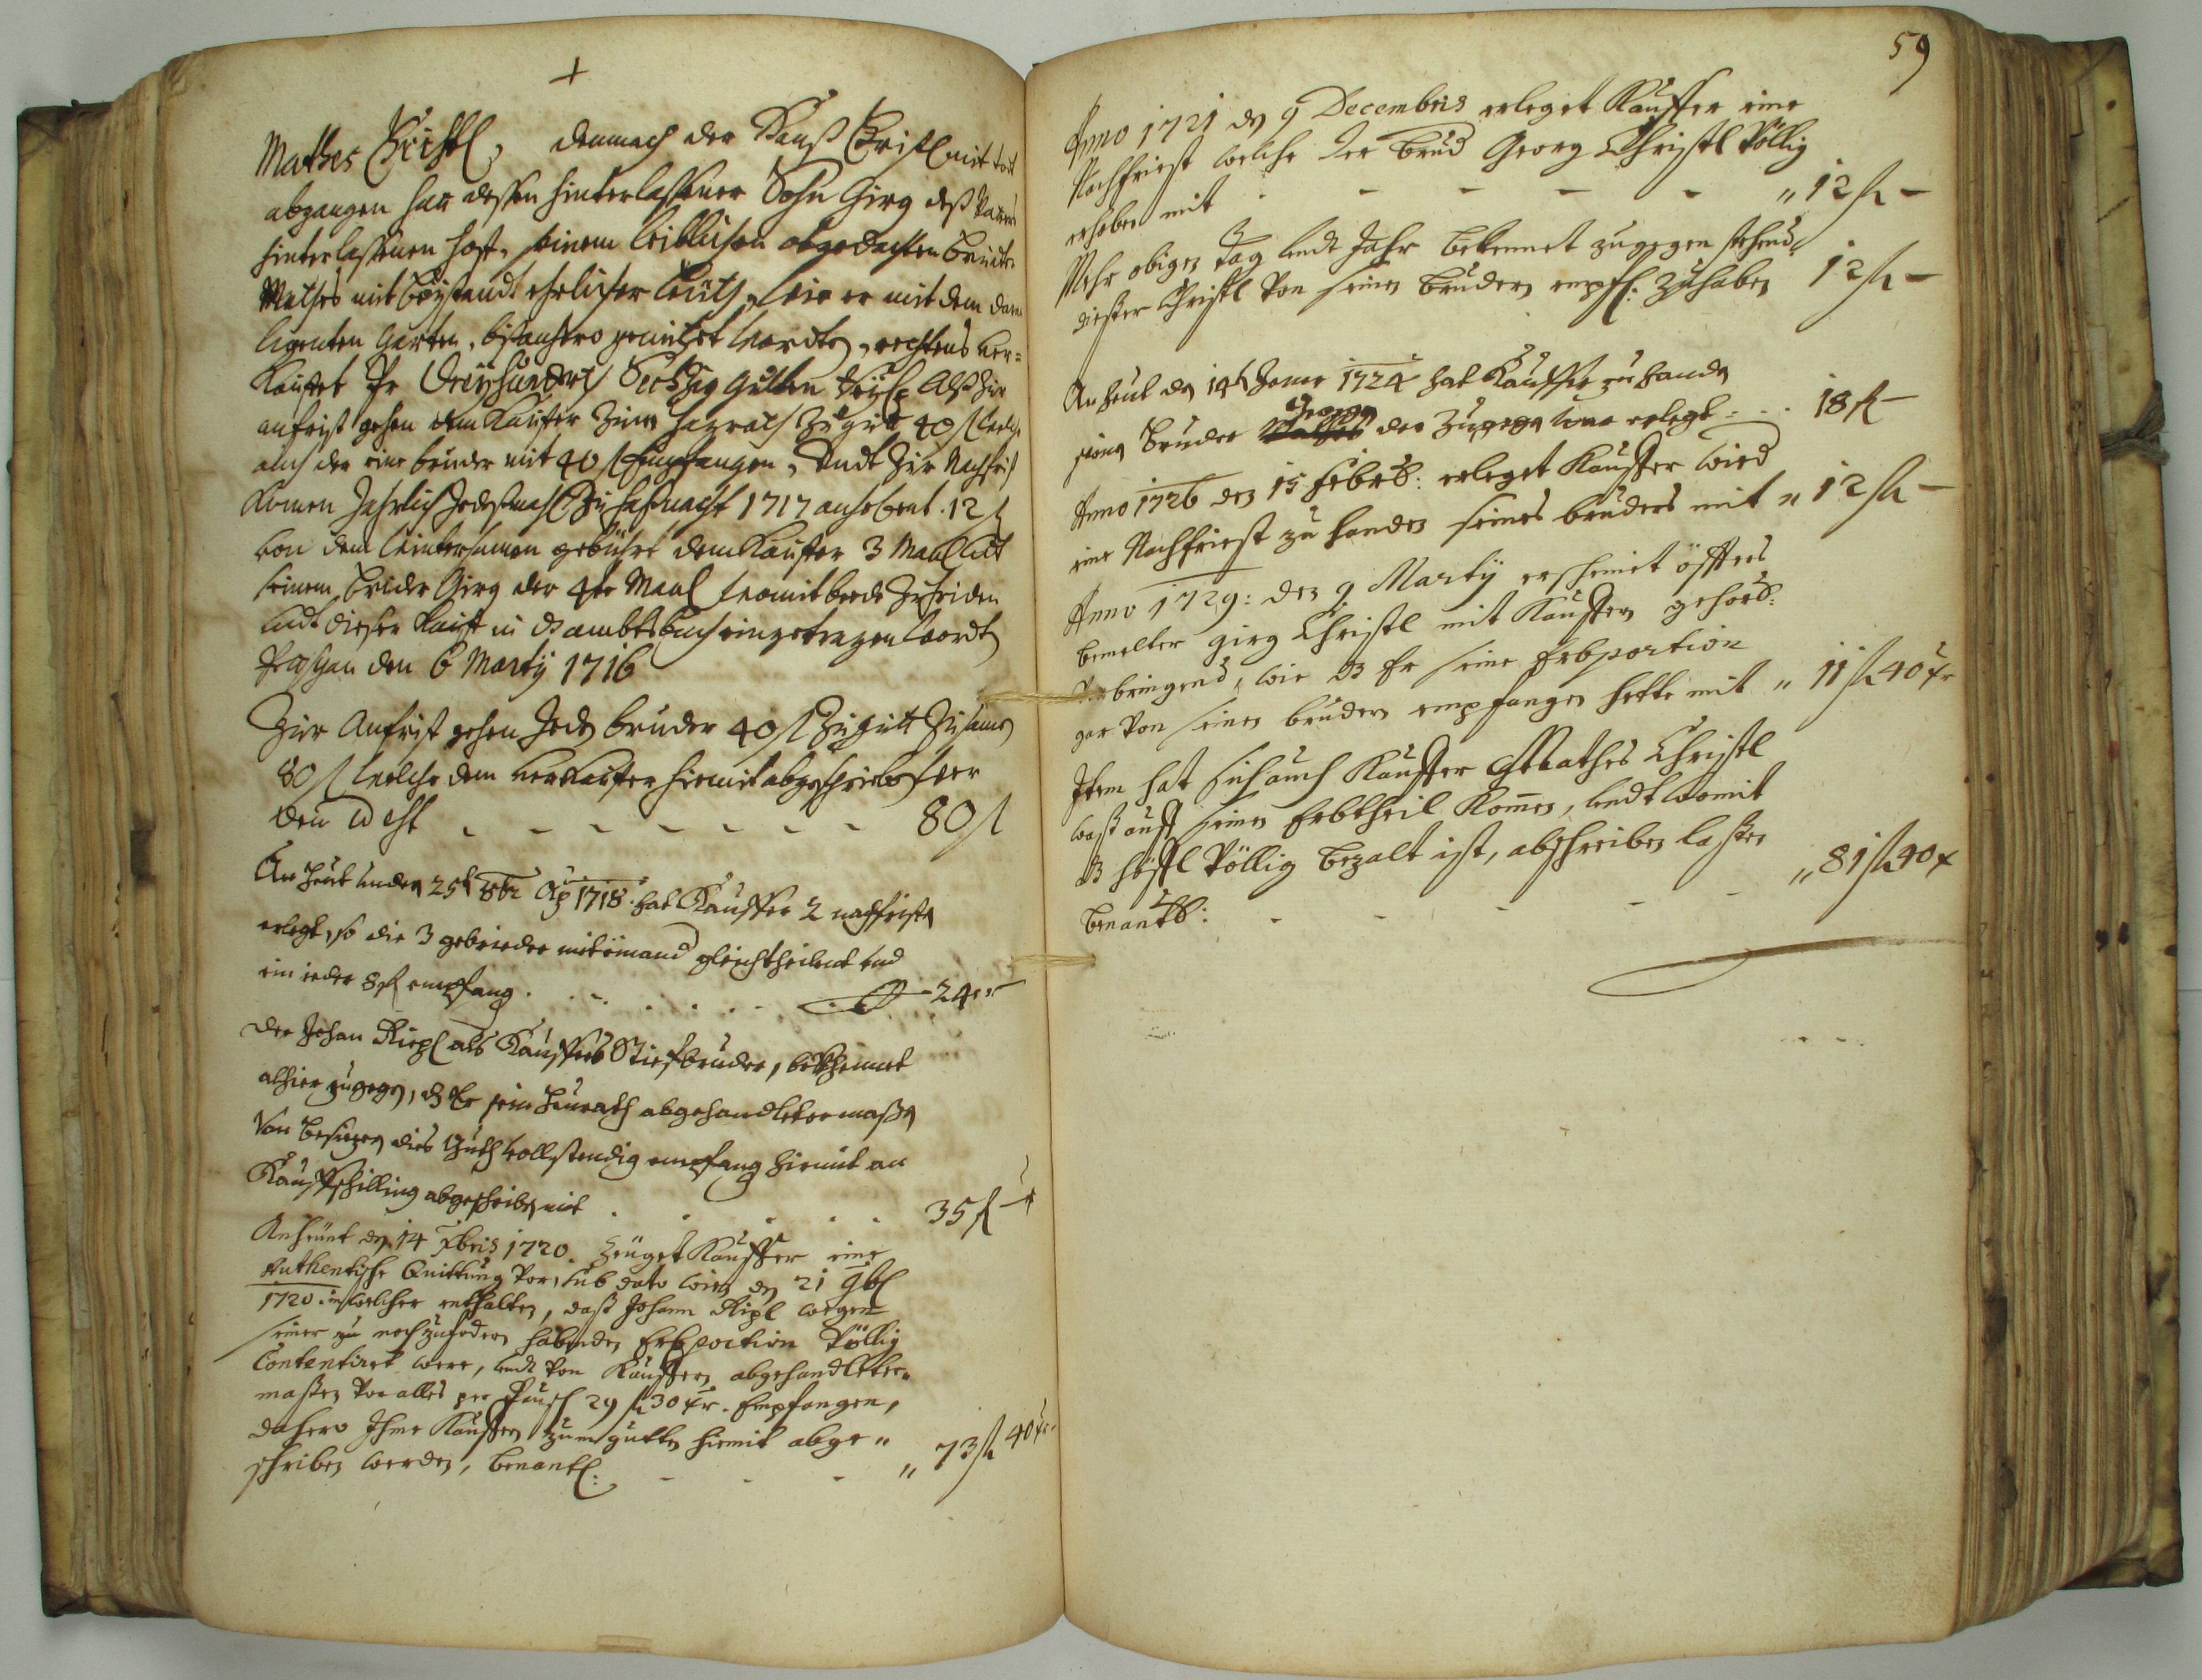 Mathes Christl, demnach der Hanß Christl mit todt
abgangen hat dessen hinterlassener Sohn Girg deß Vatters
hinterlassenen hoff, seinem leiblichen obgedachten bruder
Mathes mit beystandt ehrlicher leüth, wie er mit dem dar
ligenten garten, bishanhero genützet worden, rechtens ver=
kauffet Pr Dreyhundert Sechzig gulden Alß Zur
anfrist gehen dem Kauffer Zum heyrath Zu gutt 40 f welche
auch der eine bruder mit 40 f Empfangen, Undt Zur Nachfrist
komen Jahrlich Jedesmahl Zu faßnacht 1717 anhebent . 12 f
von dem gebührt dem Kauffer 3 Maal Undt
seinem bruder Girg der 4te Maal womit beede Zufriden
Undt dieser Kauff in ambtsbuch eingetragen wordt
den 6 Martÿ 1716
Zur Anfrist gehen Jeden bruder 40 f Zu gutt Zusamen
80 f welche dem verkauffer hiermit abgeschrieben wer
den id est - - - - - - - 80 f
An heut Unden 25t 8br Ao 1718 hat Kauffer 2 nachfristen
erlegt, so die 3 gebrieder miteinand gleichtheilent und
ein ieder 8 f empfang . . . . . . . - 24 "
Der Johan Riepl als Kauffers Stiefbruder, bekhennet
alhier zugegen, dz Er sein heurath abgehandletermaßen
Von besizern dies Guth vollstendig empfang hiemit an
Kauffschilling abgeschriben mit . . . . . 35 f -
An heünt den 14 Xbris 1720. Zeüget Kauffer eine
Authentische Quittung vor, sub dato Wien den 21 9bl
1720. in welcher enthalten, daß Johann Ripl wegen
seiner zu nochzufodern habenden Erbportion Völlig
Contentiret were, undt von Kauffern abgehandleter=
maßen vor alles per Pausch 29 fl 30 xr. Empfangen,
dahero Ihme Kauffern zum gutten hiemit abge "
schriben werden, benantl: - - - " 73 fl 40 xr.
59
Anno 1721 den 9 Decembris erleget Kauffer eine
Nachfrist welche der brud Georg Christl Völlig
erhoben mit - - - - - " 12 fl -
Mehr obigen Tag undt Jahr bekennet zugegen stehend
dießer Christl von seinen brudern empf: zuhaben 12 fl -
An heut den 14t Jener 1724 hat Kauffer zu handen
seines bruder Georg der zugegen ware erlegt . . . 18 f -
Anno 1726 den 15 Febrl: erleget Kauffer wied
eine Nachfrist zu handen seines bruders mit " 12 fl -
Anno 1729: den 9 Martÿ erscheinet öffters
bemelter girg Christl mit Kauffern gehors:
Vorbringend, wie dz Er seine Erbportion
gar von seinen brudern empfangen hette mit " 11 fl 40 xr
Item hat sich auch Kauffer Mathes Christl
waß auff seinen Erbtheil komen, undt womit
dz höffl Völlig bezalt ist, abschreiben lassen
benantl: - - - - - " 81 fl 40 x